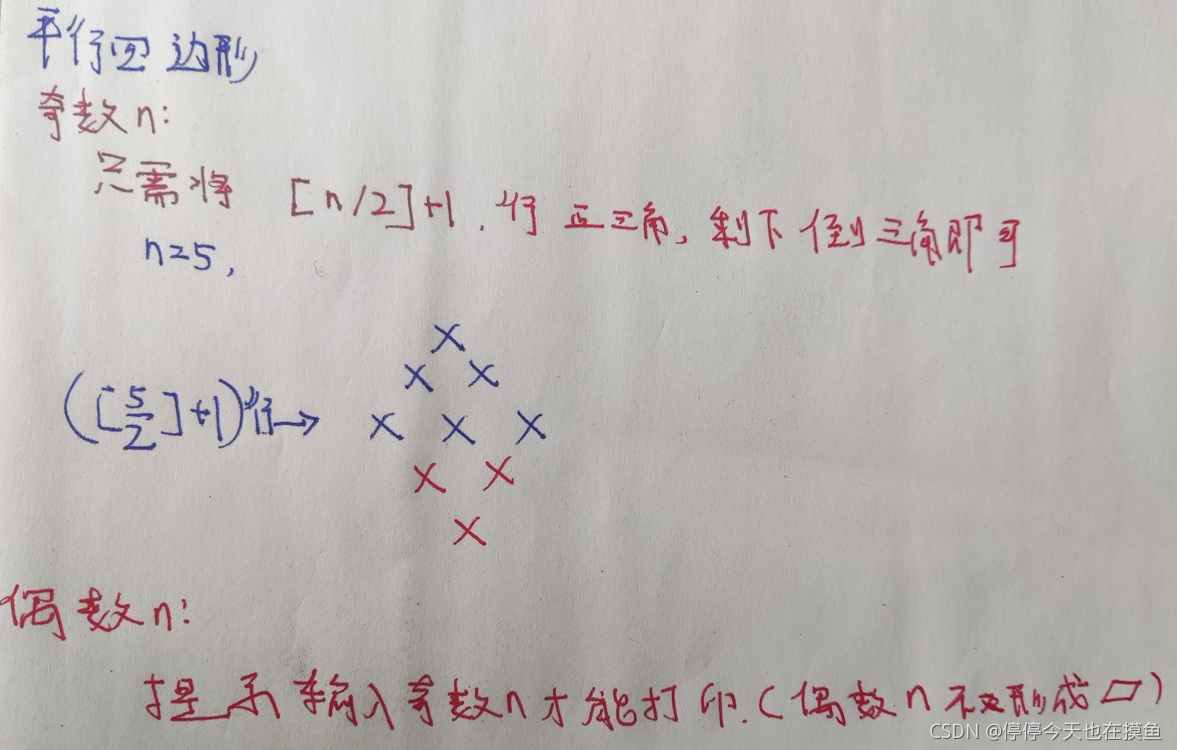 平行四边形
奇数n:
只需将 [n/2]+1.行 正三角,剩下倒三角即可
n=5,
([5/2]+1)行→
X
X X
X X X
X X
X
偶数n:
提示输入奇数n才能打印.(偶数n不 形成▱)
CSDN @停停今天也在摸鱼